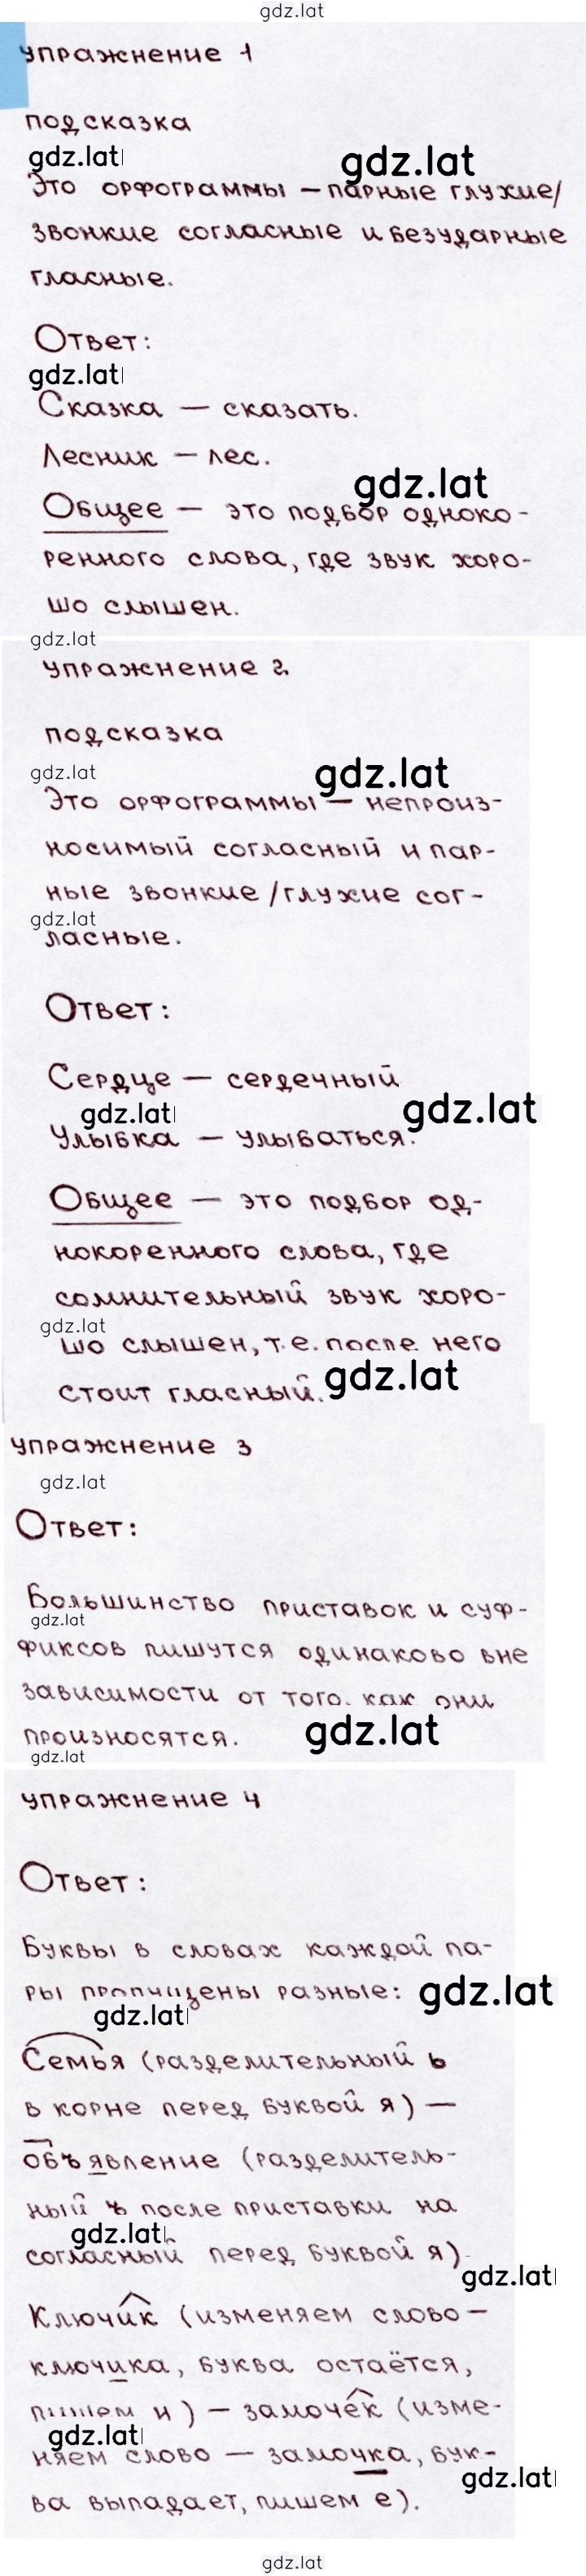 gdz.lat
упражнение 1
подсказка
gdz.lat
gdz.lat
Это орфограммы – парные глухие/
звонкие согласные и безударные
гласные.
Ответ:
gdz.lat
Сказка – сказать.
Лесник – лес.
gdz.lat
Общее – это подбор одноко-
ренного слова, где звук хоро-
шо слышен.
gdz.lat
упражнение 2
подсказка
gdz.lat
gdz.lat
Это орфограммы – непроиз-
носимый согласный и пар-
ные звонкие/глухие сог-
gdz.lat
ласные.
Ответ:
Сердце – сердечный
gdz.lat
gdz.lat
Улыбка – улыбаться.
Общее – это подбор од-
нокоренного слова, где
сомнительный звук хоро-
gdz.lat
шо слышен, т.е. после него
gdz.lat
стоит гласный.
упражнение 3
gdz.lat
Ответ:
Большинство приставок и суф-
gdz.lat
фиксов пишутся одинаково вне
зависимости от того, как они
gdz.lat
произносятся.
gdz.lat
упражнение 4
Ответ:
Буквы в словах каждой па-
ры пропущены разные:
gdz.lat
gdz.lat
Семья (разделительный ь
в корне перед буквой я) –
объявление (разделитель-
ный ъ после приставки на
gdz.lat
согласный перед буквой я)
gdz.lat
Ключик (изменяем слово –
ключика, буква остаётся,
пишем и) – замочек (изме-
gdz.lat
няем слово – замочка, бук-
gdz.lat
ва выпадает, пишем е).
gdz.lat